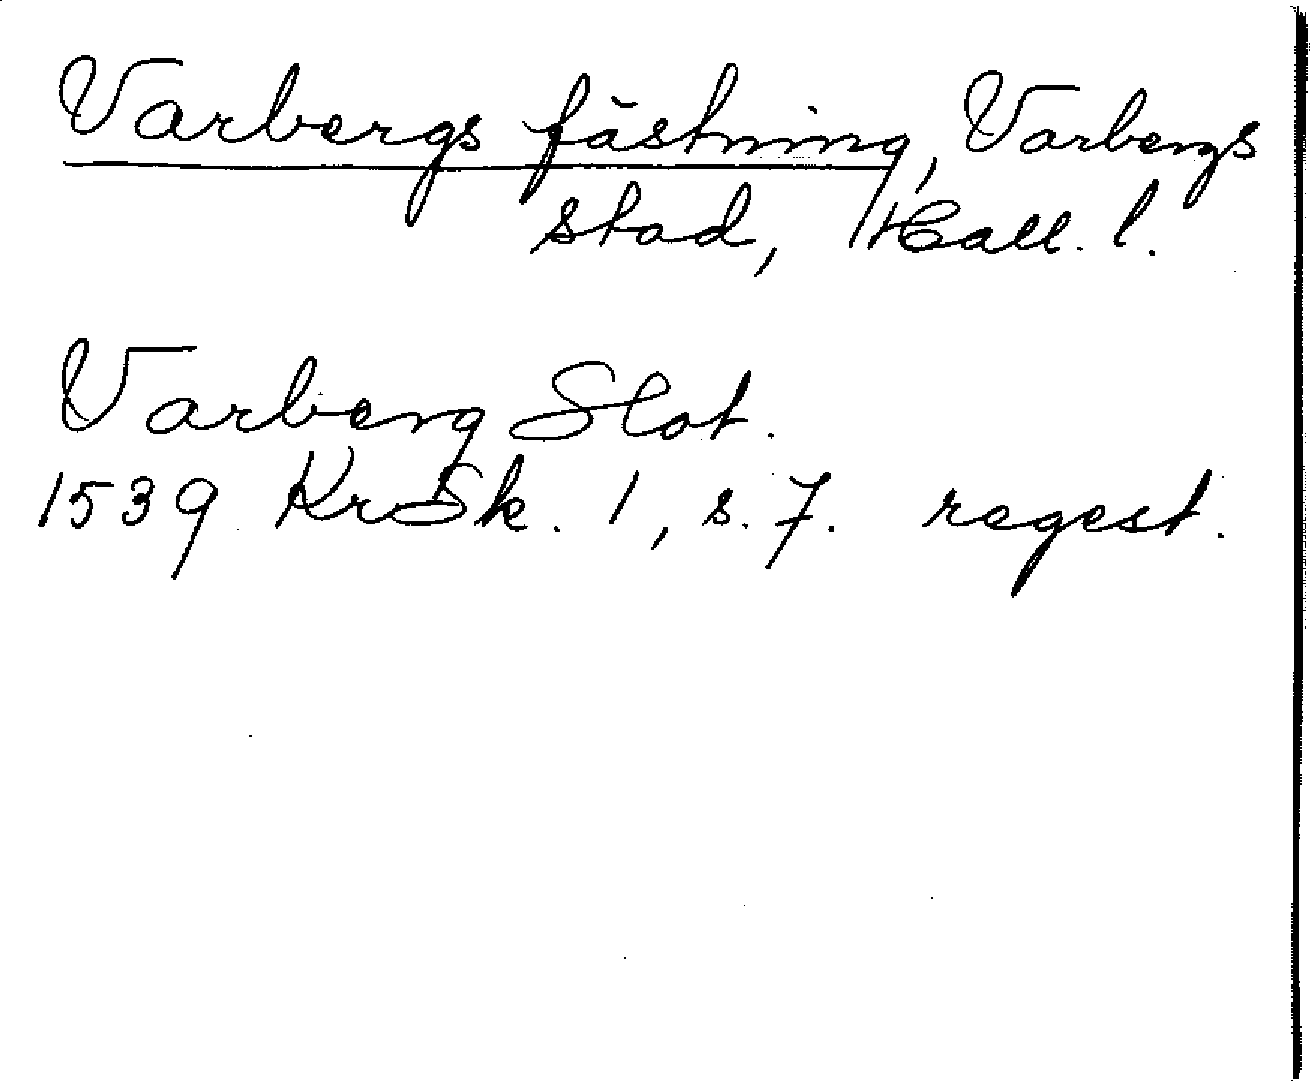 Varbergs fästning, Varbergs
stad, Hall. l.
Varberg Slot.
1539 KrSk. 1, s. 7. regest.